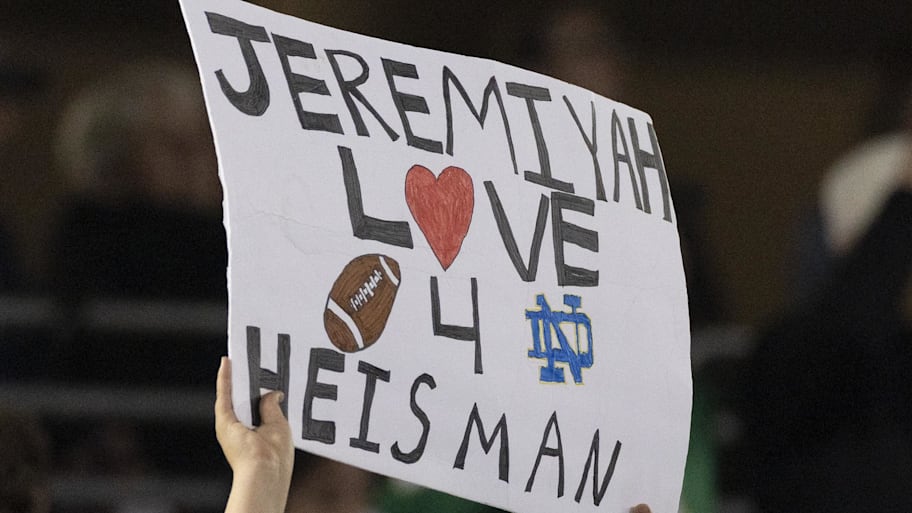 JEREMIYAH
L❤VE
4 ND
HEISMAN